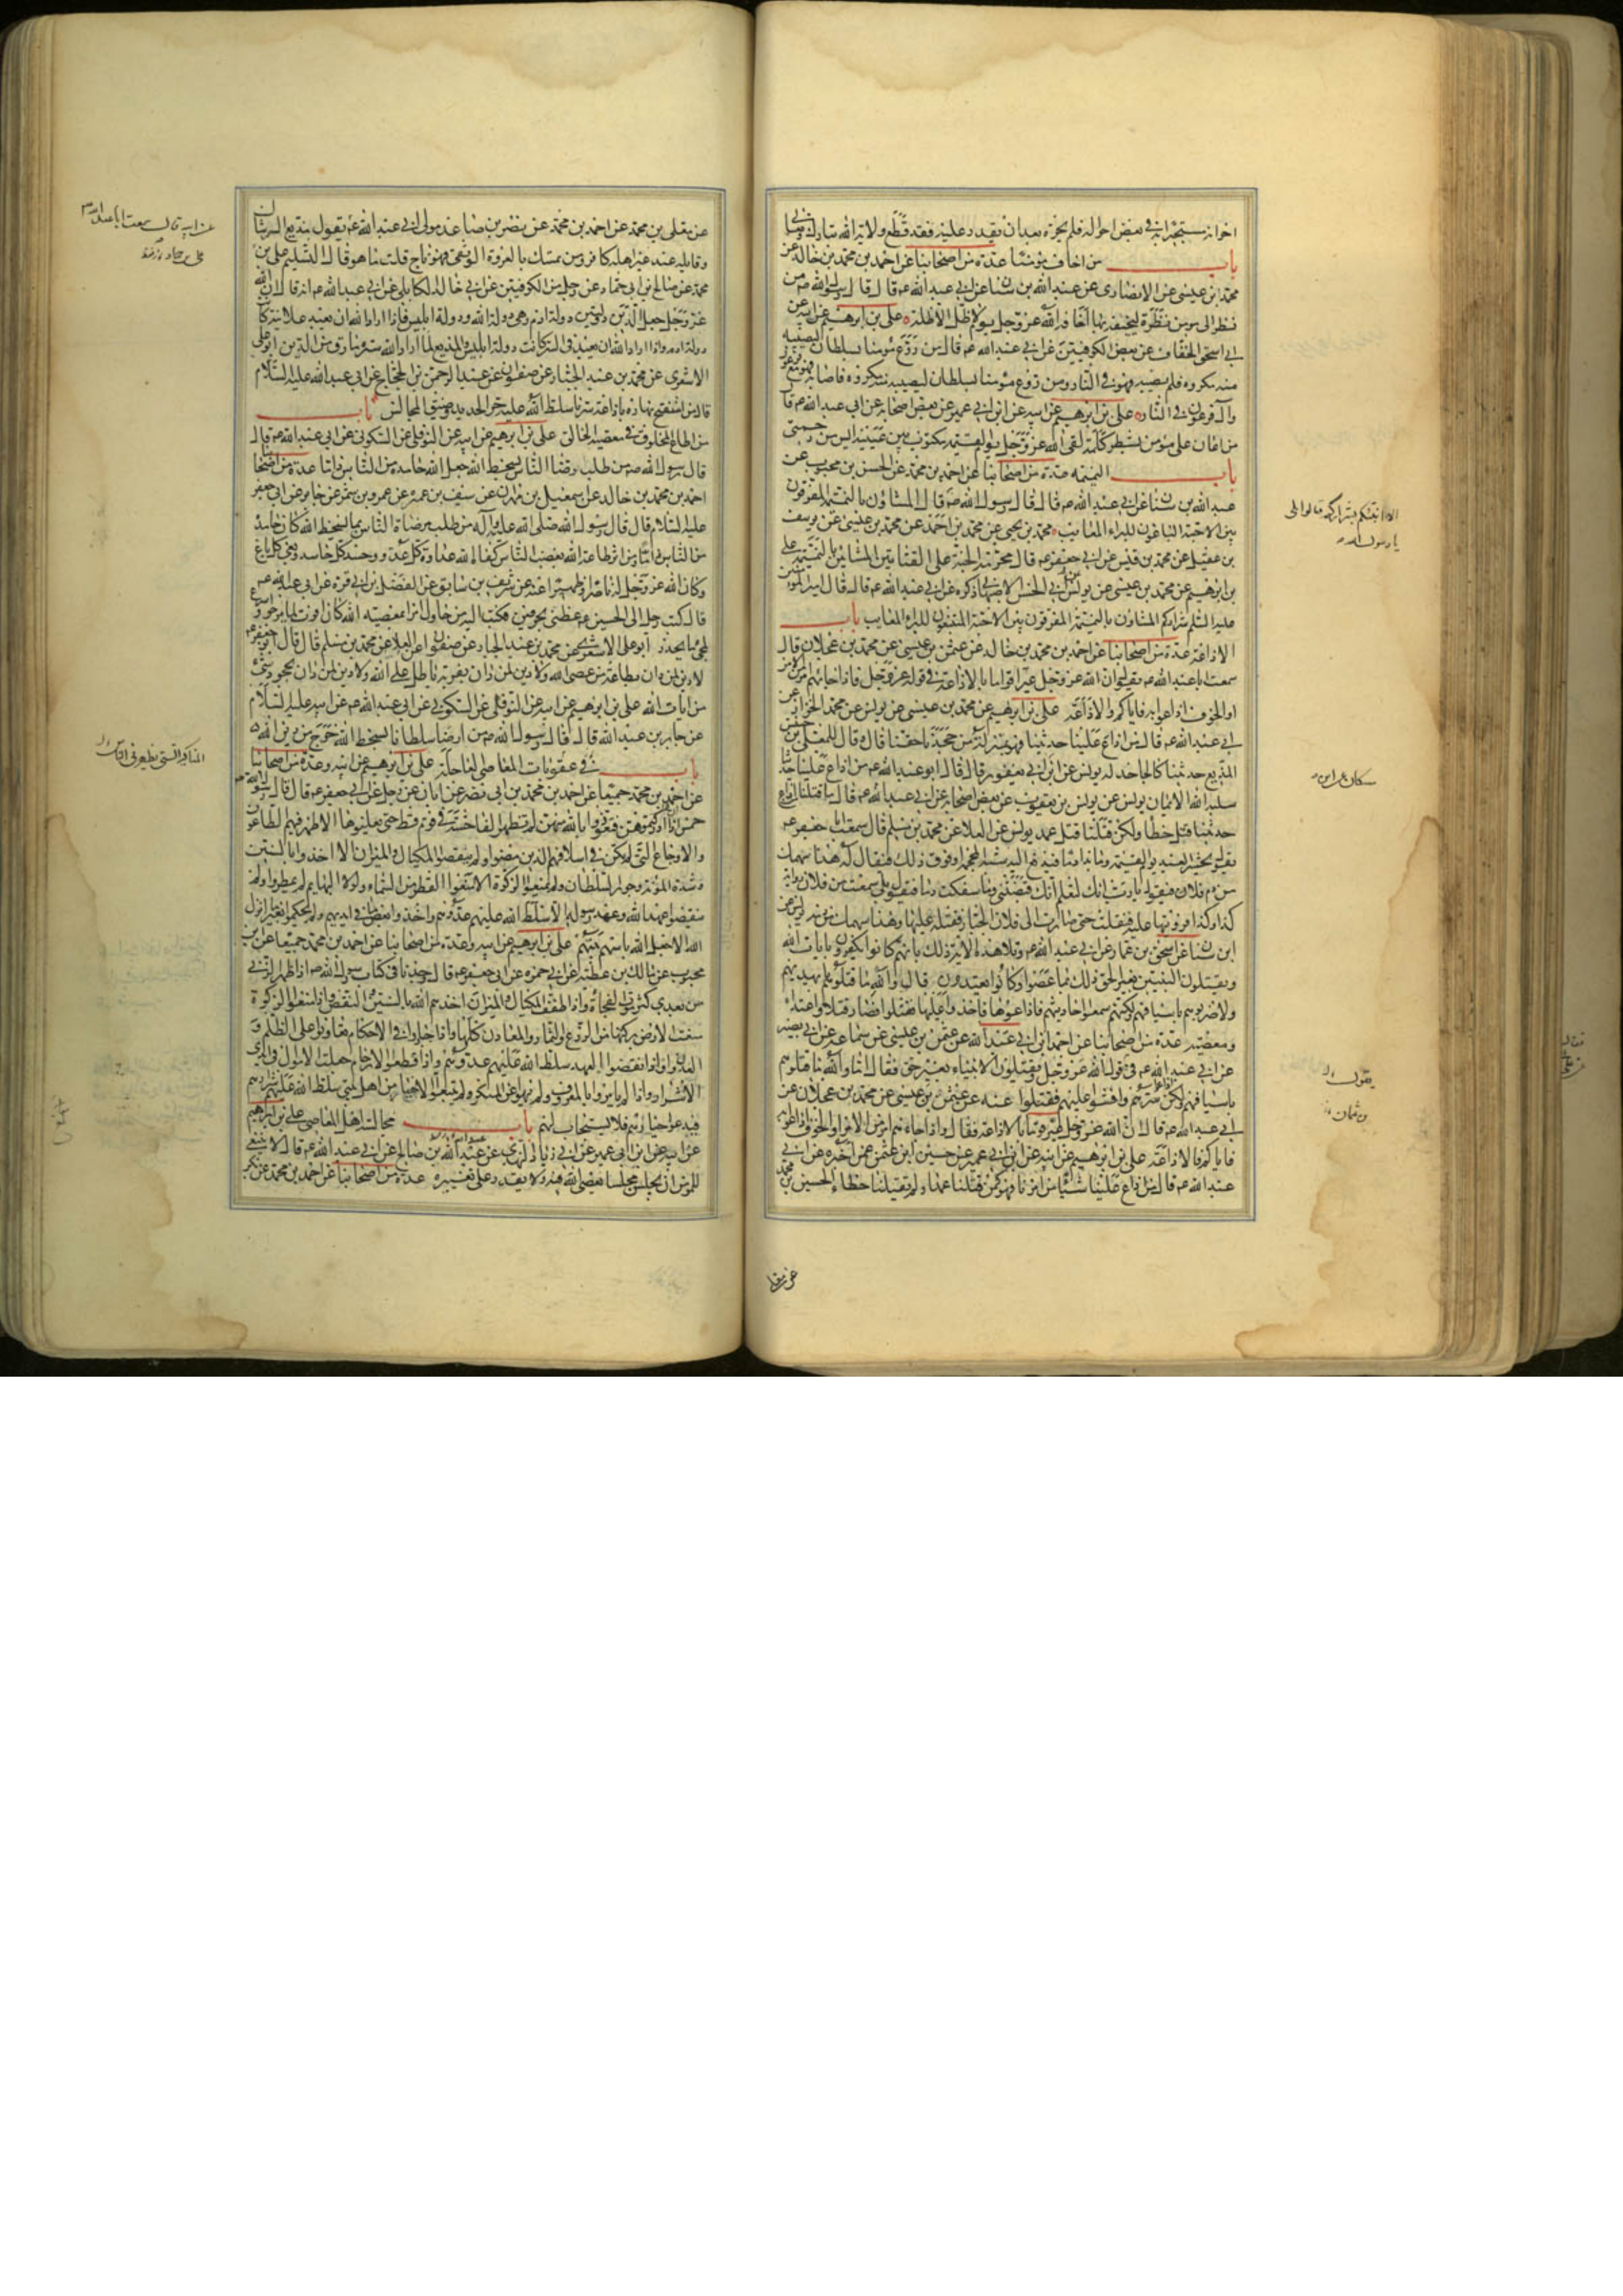 اخوانه مستجيرا به في بعض احواله فلم يجره بعد ان يقدر عليه فقد قطع ولاية الله تبارك وتعالى
باب من اخاف مؤمنا عدة من اصحابنا عن احمد بن محمد بن خالد عن
محمد بن عيسى عن الانصارى عن عبد الله بن سنان عن ابي عبد الله عم قال قال رسول الله ص من
نظر الى مومن نظرة ليخيفه بها اخافه الله عز وجل يوم لا ظل الا ظله على بن ابرهيم عن ابيه عن
ابي اسحق الخفاف عن بعض الكوفيين عن ابي عبد الله عم قال من روع مؤمنا بسلطان ليصيبه
منه مكروه فلم يصبه فهو في النار ومن روع مؤمنا بسلطان ليصيبه منه مكروه فاصابه فهو مع فرعون
وآل فرعون في النار على بن ابرهيم عن ابيه عن ابن ابي عمير عن بعض اصحابه عن ابي عبد الله عم قال
من اعان على مؤمن بشطر كلمة لقى الله عز وجل يوم القيمة مكتوب بين عينيه ايس من رحمتى
باب النميمة عدة من اصحابنا عن احمد بن محمد عن الحسن بن محبوب عن
عبد الله بن سنان عن ابي عبد الله عم قال قال رسول الله ص قال المشاؤن بالنميمة المفرقون
بين الاحبة الباغون للبراء المعايب محمد بن يحيى عن محمد بن احمد عن محمد بن عيسى عن يوسف
بن عقيل عن محمد بن قيس عن ابي جعفر عم قال محرمة الجنة على القتاتين المشائين بالنميمة على
بن ابرهيم عن محمد بن عيسى عن يونس عن ابي الحسن الاصبهانى ذكره عن ابي عبد الله عم قال قال امير المومنين
عليه السلم شراركم المشاؤن بالنميمة المفرقون بين الاحبة المبتغون للبراء المعايب باب
الاذاعة عدة من اصحابنا عن احمد بن محمد بن خالد عن عثمن بن عيسى عن محمد بن عجلان قال
سمعت ابا عبد الله عم يقول ان الله عز وجل عير اقواما بالاذاعة في قوله عز وجل فاذا جاءهم امر من الامن
او الخوف اذاعوا به فاياكم والاذاعة على بن ابرهيم عن محمد بن عيسى عن يونس عن محمد الخزاز عن
ابي عبد الله عم قال من اذاع علينا حديثنا فهو بمنزلة من جحدنا حقنا قال وقال للمعلى بن خنيس
المذيع حديثنا كالجاحد له يونس عن ابن ابي يعفور قال قال ابو عبد الله عم من اذاع علينا حديثنا
سلبه الله الايمان يونس عن يونس بن يعقوب عن بعض اصحابه عن ابي عبد الله عم قال ما قتلنا من اذاع
حديثنا قتل خطا ولكن قتلنا قتل عمد يونس عن العلا عن محمد بن مسلم قال سمعت ابا جعفر عم
يقول يحشر العبد يوم القيمة وما ندا دما فيدفع اليه شبه المحجمة او فوق ذلك فيقال له هذا سهمك
من دم فلان فيقول يا رب انك لتعلم انك قبضتنى وما سفكت دما فيقول بلى سمعت من فلان رواية
كذا وكذا فرويتها عليه فنقلت حتى صارت الى فلان الجبار فقتله عليها وهذا سهمك من دمه يونس عن
ابن سنان عن اسحق بن عمار عن ابي عبد الله عم وتلا هذه الاية ذلك بانهم كانوا يكفرون بايات الله
ويقتلون النبيين بغير الحق ذلك بما عصوا وكانوا يعتدون قال والله ما قتلوهم بايديهم
ولا ضربوهم باسيافهم ولكنهم سمعوا احاديثهم فاذاعوها فاخذوا عليها فقتلوا فصار قتلا واعتداء
ومعصية عدة من اصحابنا عن احمد بن ابي عبد الله عن عثمن بن عيسى عن سماعة عن ابي بصير
عن ابي عبد الله عم في قول الله عز وجل ويقتلون الانبياء بغير حق فقال اما والله ما قتلوهم
باسيافهم ولكن اذاعوا سرهم وافشوا عليهم فقتلوا عنه عن عثمن بن عيسى عن محمد بن عجلان عن
ابي عبد الله عم قال ان الله عز وجل عير قوما بالاذاعة فقال واذا جاءهم امر من الامن او الخوف اذاعوا به
فاياكم والاذاعة على بن ابرهيم عن ابيه عن ابن ابي عمير عن حسين بن عثمن عمن اخبره عن ابي
عبد الله عم قال من اذاع علينا شيئا من امرنا فهو كمن قتلنا عمدا ولم يقتلنا خطاء الحسين بن محمد
الا انبئكم بشراركم قالوا بلى
يا رسول الله ص
يقول
عن معلى
عن معلى بن محمد عن احمد بن محمد عن نصر بن صاعد مولى ابي عبد الله عم يقول مذيع السر شاك
وقايله عند غير اهله كافر ومن تمسك بالعروة الوثقى فهو ناج قلت ما هو قال التسليم على بن
محمد عن صالح بن ابي حماد عن رجل من الكوفيين عن ابي خالد الكابلى عن ابي عبد الله عم انه قال ان الله
عز وجل جعل الدين دولتين دولة ادم وهي دولة الله ودولة ابليس فاذا اراد الله ان يعبد علانية كانت
دولة ادم واذا اراد الله ان يعبد في السر كانت دولة ابليس والمذيع لما اراد الله ستره مارق من الدين ابو على
الاشعرى عن محمد بن عبد الجبار عن صفوان عن عبد الرحمن بن الحجاج عن ابي عبد الله عليه السلام
قال من استفتح نهاره باذاعة سرنا سلط الله عليه حر الحديد وضيق المحابس باب
من اطاع المخلوق في معصية الخالق على بن ابرهيم عن ابيه عن النوفلى عن السكونى عن ابي عبد الله عم قال
قال رسول الله ص من طلب رضا الناس بسخط الله جعل الله حامده من الناس ذاما عدة من اصحابنا
احمد بن محمد بن خالد عن اسمعيل بن مهران عن سيف بن عميرة عن عمرو بن شمر عن جابر عن ابي جعفر
عليه السلام قال قال رسول الله صلى الله عليه وآله من طلب مرضاة الناس بما يسخط الله كان حامده
من الناس ذاما ومن اثر طاعة الله بغضب الناس كفاه الله عداوة كل عدو وحسد كل حاسد وبغى كل باغ
وكان الله عز وجل له ناصرا وظهيرا عنه عن شريف بن سابق عن الفضل بن ابي قرة عن ابي عبد الله عم
قال كتب رجل الى الحسين عم عظنى بحرفين فكتب اليه من حاول امرا بمعصية الله كان افوت لما يرجو واسرع
لمجئ ما يحذر ابو على الاشعرى عن محمد بن عبد الجبار عن صفوان عن العلا عن محمد بن مسلم قال قال ابو جعفر عم
لا دين لمن دان بطاعة من عصى الله ولا دين لمن دان بفرية باطل على الله ولا دين لمن دان بجحود شئ
من ايات الله على بن ابرهيم عن ابيه عن النوفلى عن السكونى عن ابي عبد الله عم عن ابيه عليه السلام
عن جابر بن عبد الله قال قال رسول الله ص من ارضا سلطانا بسخط الله خرج من دين الله
باب في عقوبات المعاصى العاجلة على بن ابرهيم عن ابيه وعدة من اصحابنا
عن احمد بن محمد جميعا عن احمد بن محمد بن ابي نصر عن ابان عن رجل عن ابي جعفر عم قال قال رسول الله ص
خمس ان ادركتموهن فتعوذوا بالله منهن لم تظهر الفاحشة في قوم قط حتى يعلنوها الا ظهر فيهم الطاعون
والاوجاع التى لم تكن في اسلافهم الذين مضوا ولم ينقصوا المكيال والميزان الا اخذوا بالسنين
وشدة المؤنة وجور السلطان ولم يمنعوا الزكوة الا منعوا القطر من السماء ولولا البهايم لم يمطروا ولم
ينقضوا عهد الله وعهد رسوله الا سلط الله عليهم عدوهم واخذوا بعض ما في ايديهم ولم يحكموا بغير ما انزل
الله الا جعل الله باسهم بينهم على بن ابرهيم عن ابيه وعدة من اصحابنا عن احمد بن محمد جميعا عن ابن
محبوب عن مالك بن عطية عن ابي حمزه عن ابي جعفر عم قال وجدنا في كتاب رسول الله ص اذا ظهر الزنى
من بعدى كثر موت الفجأة واذا طفف المكيال والميزان اخذهم الله بالسنين والنقص واذا منعوا الزكوة
منعت الارض بركتها من الزرع والثمار والمعادن كلها واذا جاروا في الاحكام تعاونوا على الظلم و
العدوان واذا نقضوا العهد سلط الله عليهم عدوهم واذا قطعوا الارحام جعلت الاموال في ايدى
الاشرار واذا لم يامروا بالمعروف ولم ينهوا عن المنكر ولم يتبعوا الاخيار من اهل بيتى سلط الله عليهم شرارهم
فيدعو اخيارهم فلا يستجاب لهم باب مجالسة اهل المعاصى على بن ابرهيم
عن ابيه عن ابن ابي عمير عن ابي زياد النهدى عن عبد الله بن صالح عن ابي عبد الله عم قال لا ينبغى
للمومن ان يجلس مجلسا يعصى الله فيه ولا يقدر على تغييره عدة من اصحابنا عن احمد بن محمد عن بكر
عن ابيه قال سمعت ابا عبد الله عم